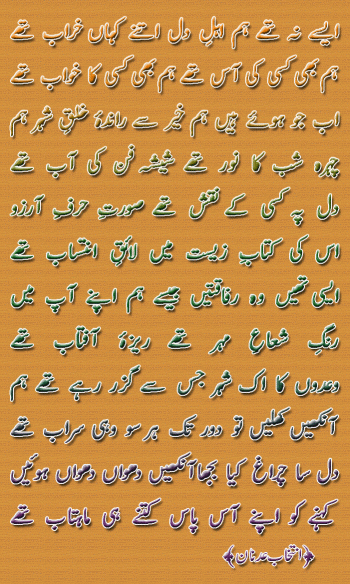 ایسے نہ تھے ہم اہلِ دل اتنے کہاں خراب تھے
ہم بھی کسی کی آس تھے ہم بھی کسی کا خواب تھے
اب جو ہوئے ہیں ہم خیر سے راندۂ خلقِ شہر ہم
چہرہ شب کا نور تھے شیشۂ فن کی آب تھے
دل پہ کسی کے نقش تھے صورتِ حرفِ آرزو
اس کی کتابِ زیست میں لائقِ انتساب تھے
ایسی تھیں وہ رفاقتیں جیسے ہم اپنے آپ میں
رنگِ شعاعِ مہر تھے ریزۂ آفتاب تھے
وعدوں کا اک شہر جس سے گزر رہے تھے ہم
آنکھیں کھلیں تو دور تک ہر سو وہی سراب تھے
دل سا چراغ کیا بجھا آنکھیں دھواں دھواں ہوئیں
کہنے کو اپنے آس پاس کتنے ہی ماہتاب تھے
﴿انتخاب عدنان﴾